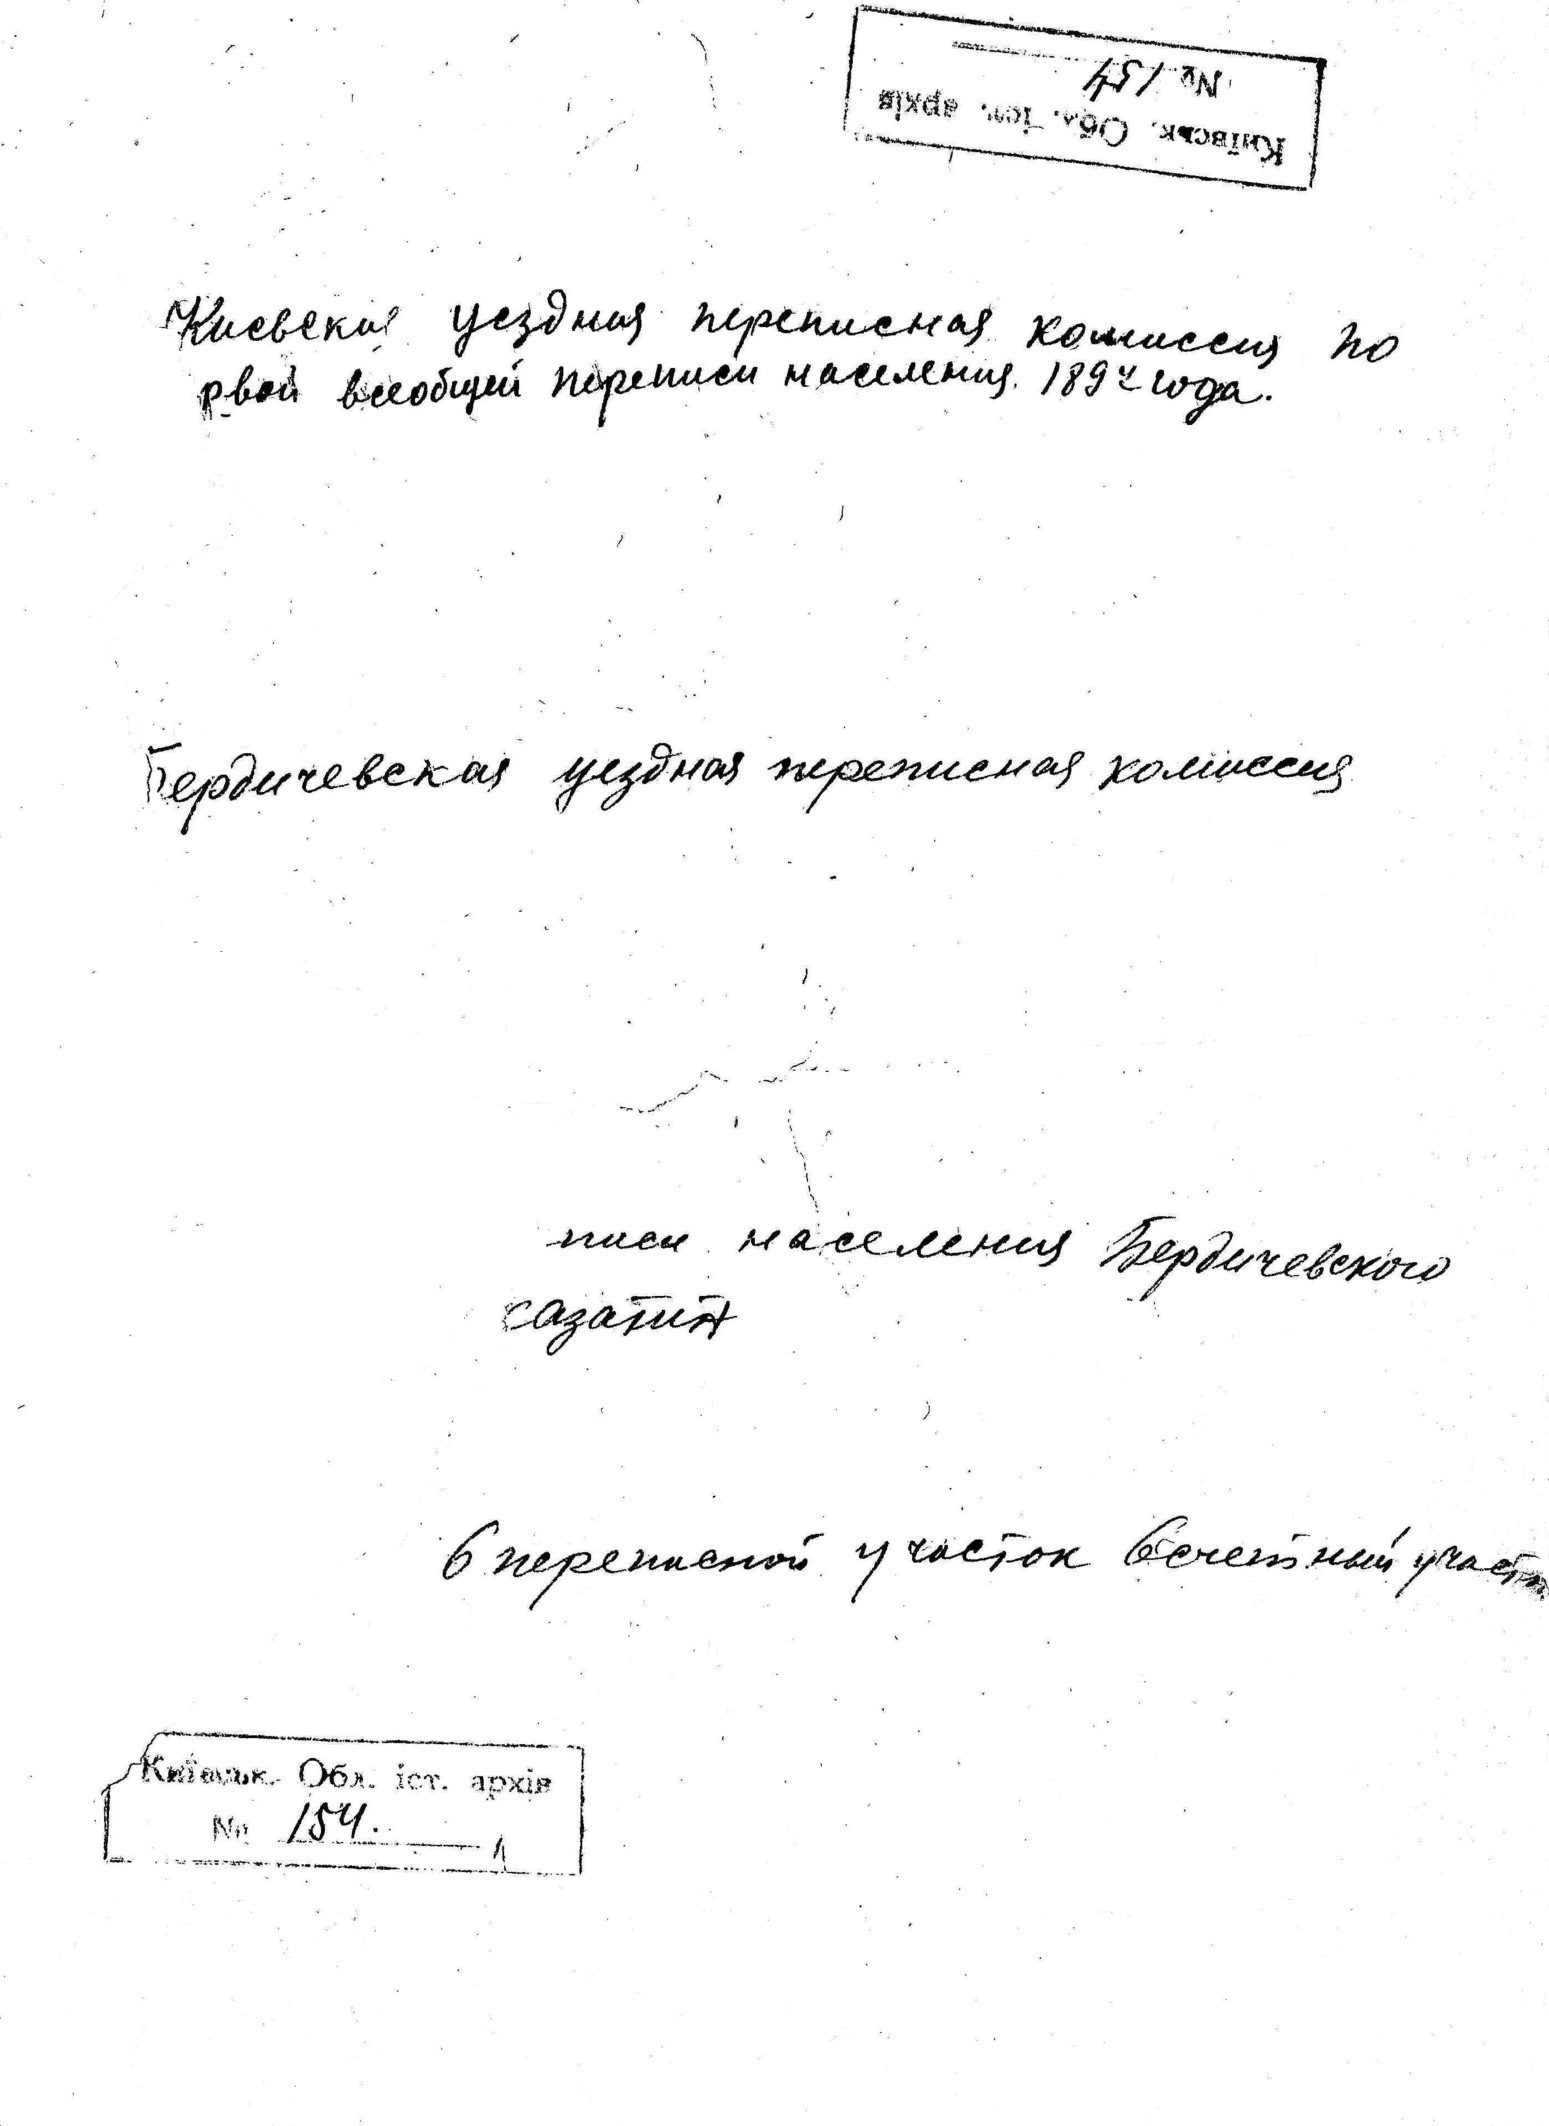 Київськ. Обл. іст. архів
№ 154
Киевская уездная переписная комиссия по
рвой всеобщей переписи населения 1897 года.
Бердичевская уездная переписная комиссия
писи населения Бердичевского
сазатин
6 переписной участок 6 счетный участк
Київськ. Обл. іст. архів
№ 154.